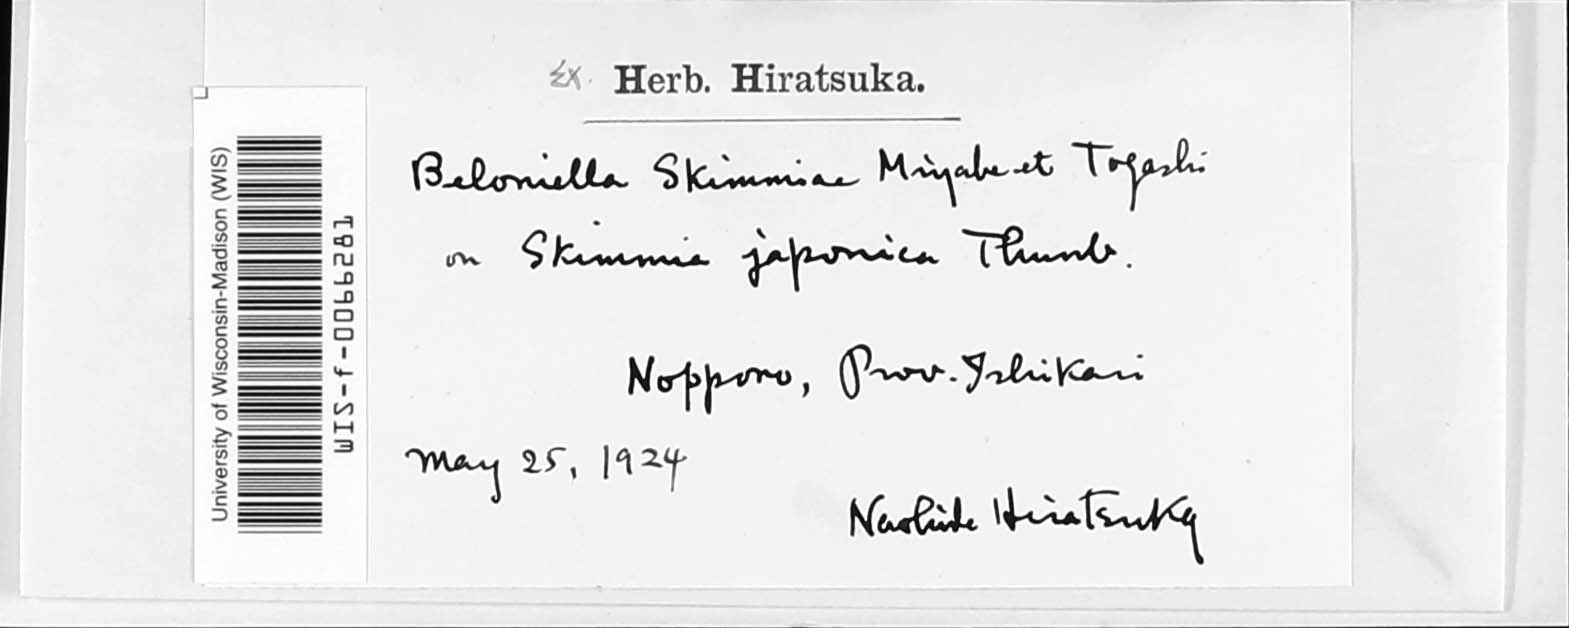 Ex. Herb. Hiratsuka.
Beloniella Skimmiae Miyabe et Togashi
on Skimmia japonica Thunb.
Nopporo, Prov. Ishikari
May 25, 1924
Naohide Hiratsuka
University of Wisconsin-Madison (WIS)
WIS-f-0066281